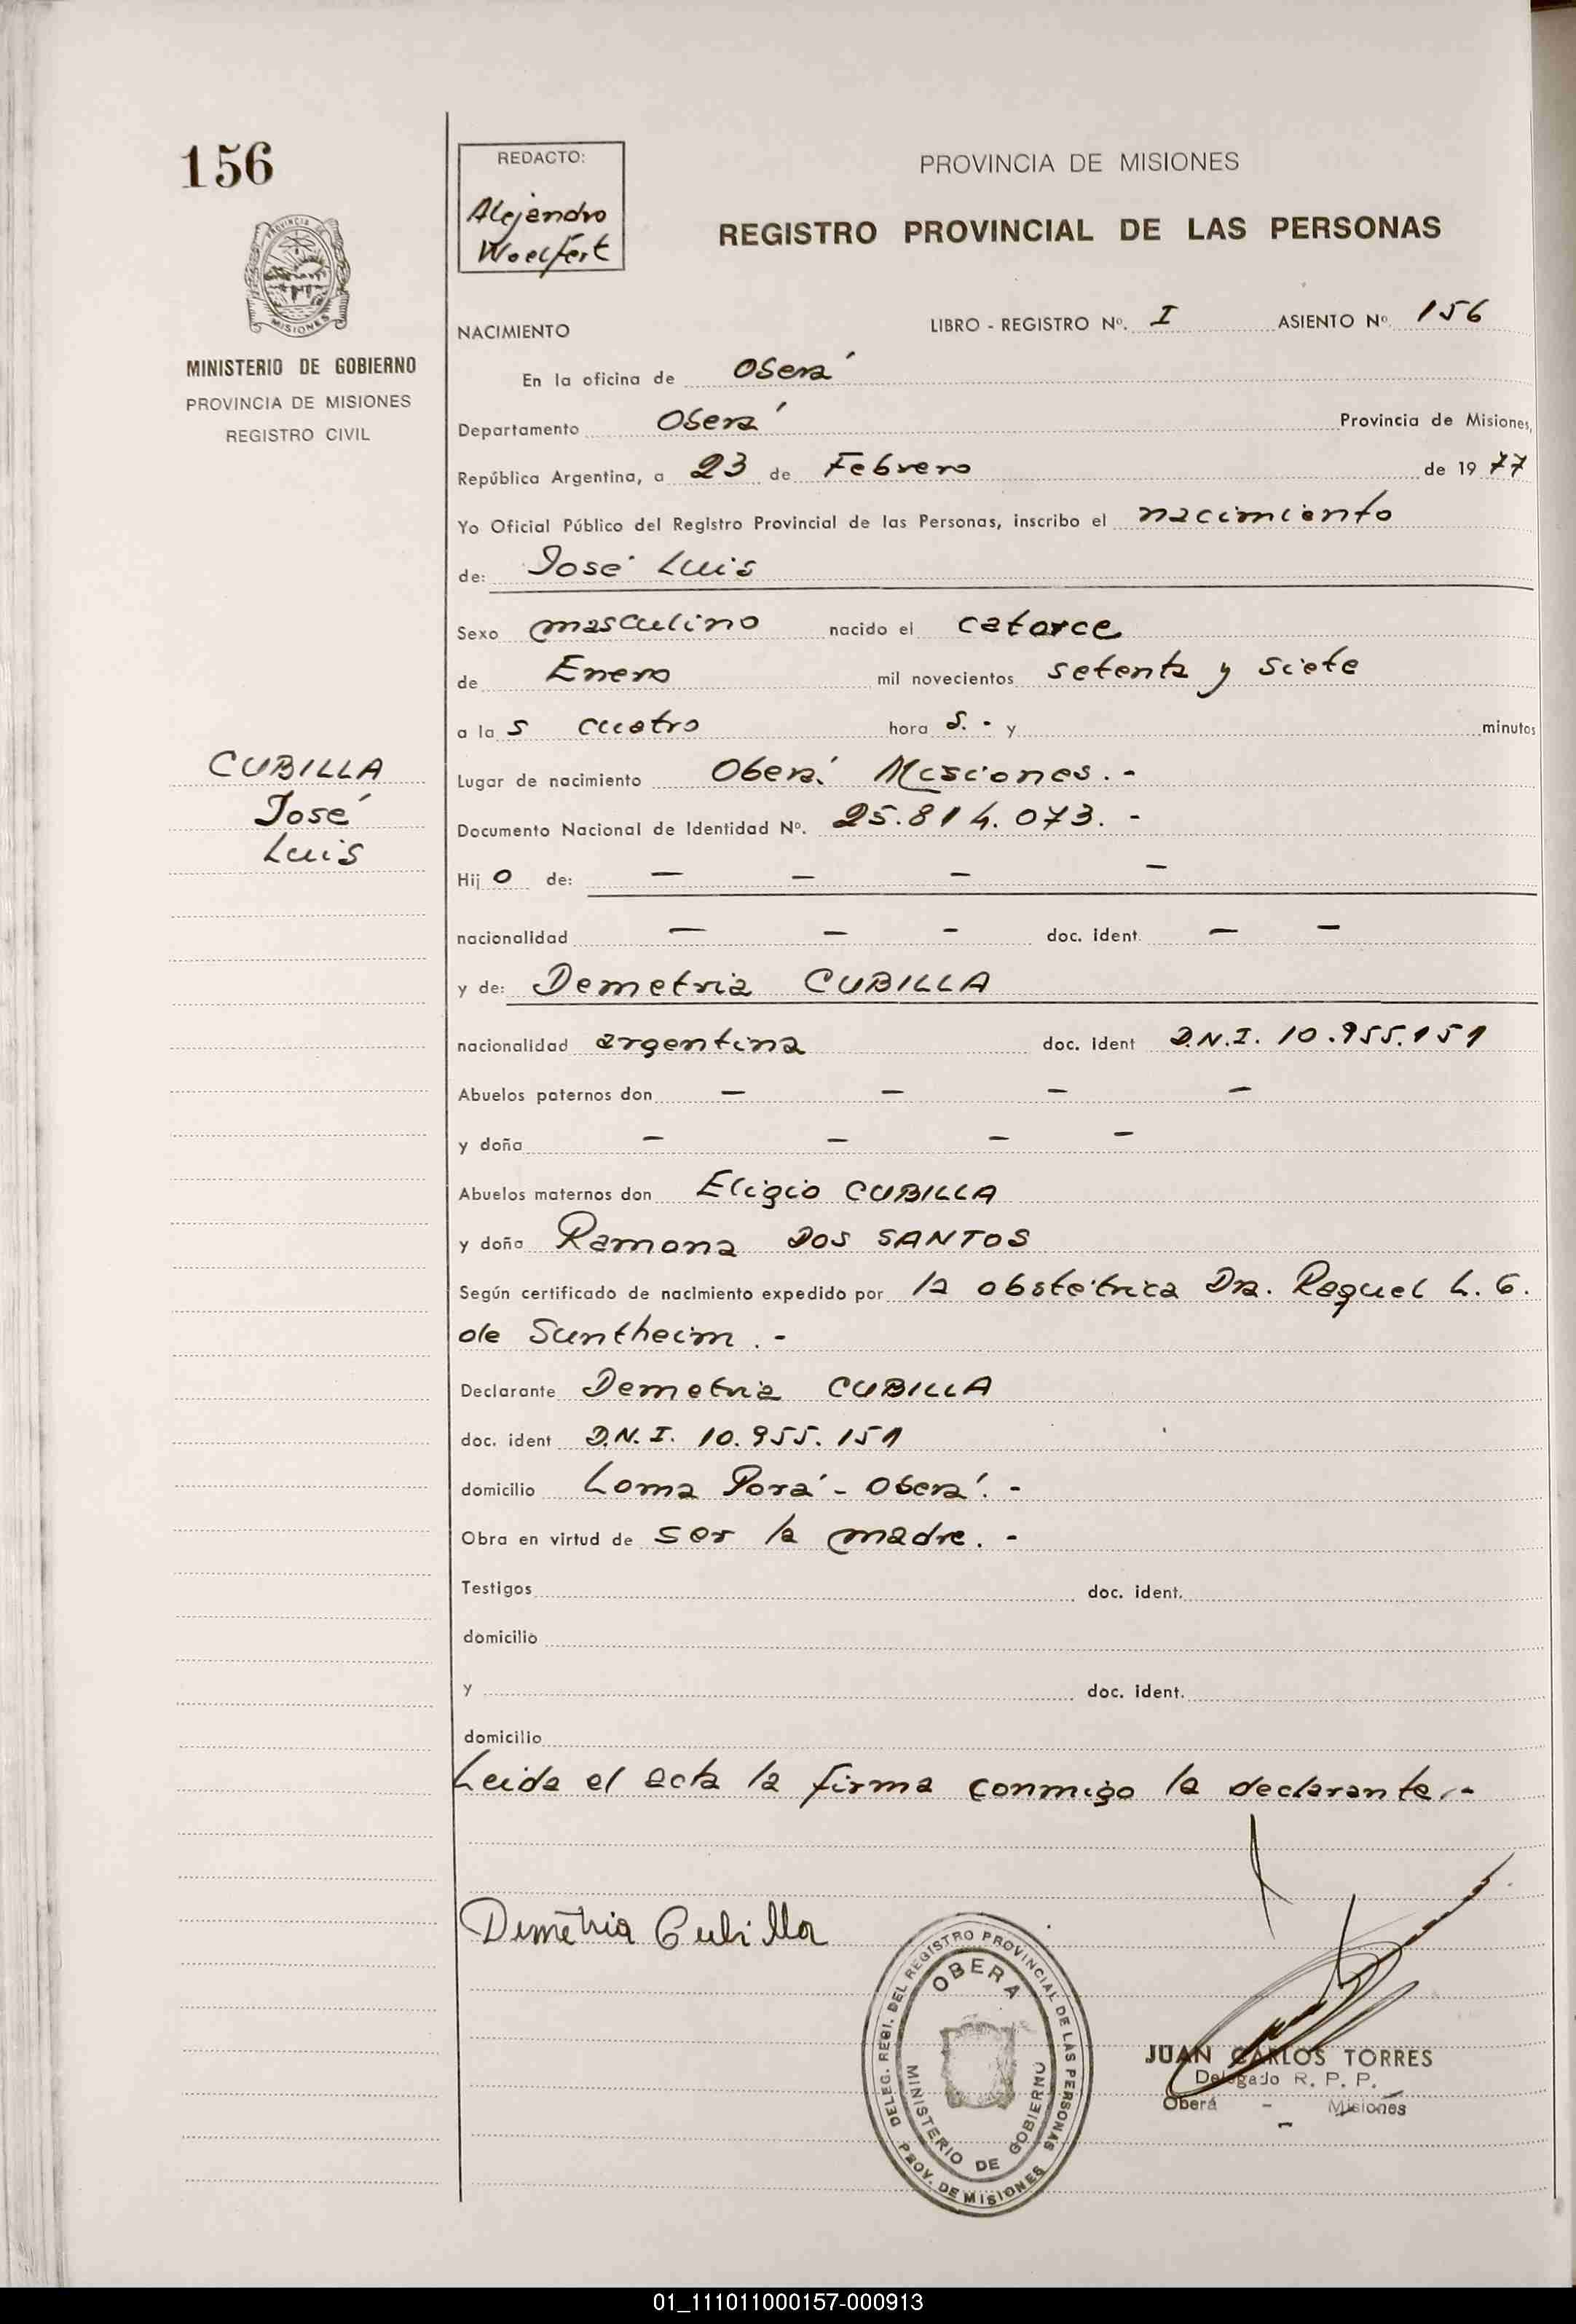 156
REDACTO:
Alejandro
Woelfert
PROVINCIA DE MISIONES
REGISTRO PROVINCIAL DE LAS PERSONAS
PROVINCIA DE
MISIONES
MINISTERIO DE GOBIERNO
PROVINCIA DE MISIONES
REGISTRO CIVIL
NACIMIENTO LIBRO - REGISTRO Nº. I ASIENTO Nº. 156
En la oficina de Oberá
Departamento Oberá Provincia de Misiones,
República Argentina, a 23 de Febrero de 1977
Yo Oficial Público del Registro Provincial de las Personas, inscribo el nacimiento
de: José Luis
Sexo masculino nacido el catorce
de Enero mil novecientos setenta y siete
a las cuatro hora s.- y minutos
CUBILLA
José
Luis
Lugar de nacimiento Oberá Misiones.-
Documento Nacional de Identidad Nº. 25.814.073.-
Hijo de: — — — —
nacionalidad — — — doc. ident. — —
y de: Demetria CUBILLA
nacionalidad argentina doc. ident D.N.I. 10.955.151
Abuelos paternos don — — — —
y doña — — — —
Abuelos maternos don Eligio CUBILLA
y doña Ramona DOS SANTOS
Según certificado de nacimiento expedido por la obstétrica Dra. Raquel L. G.
de Suntheim.-
Declarante Demetria CUBILLA
doc. ident D.N.I. 10.955.151
domicilio Loma Porá - Oberá.-
Obra en virtud de ser la madre.-
Testigos doc. ident.
domicilio
y doc. ident.
domicilio
Leida el acta la firma conmigo la declarante.-
Demetria Cubilla
DELEG. REGI. DEL REGISTRO PROVINCIAL DE LAS PERSONAS
OBERA
MINISTERIO DE GOBIERNO
PROV. DE MISIONES
JUAN CARLOS TORRES
Delegado R. P. P.
Oberá - Misiones
01_111011000157-000913